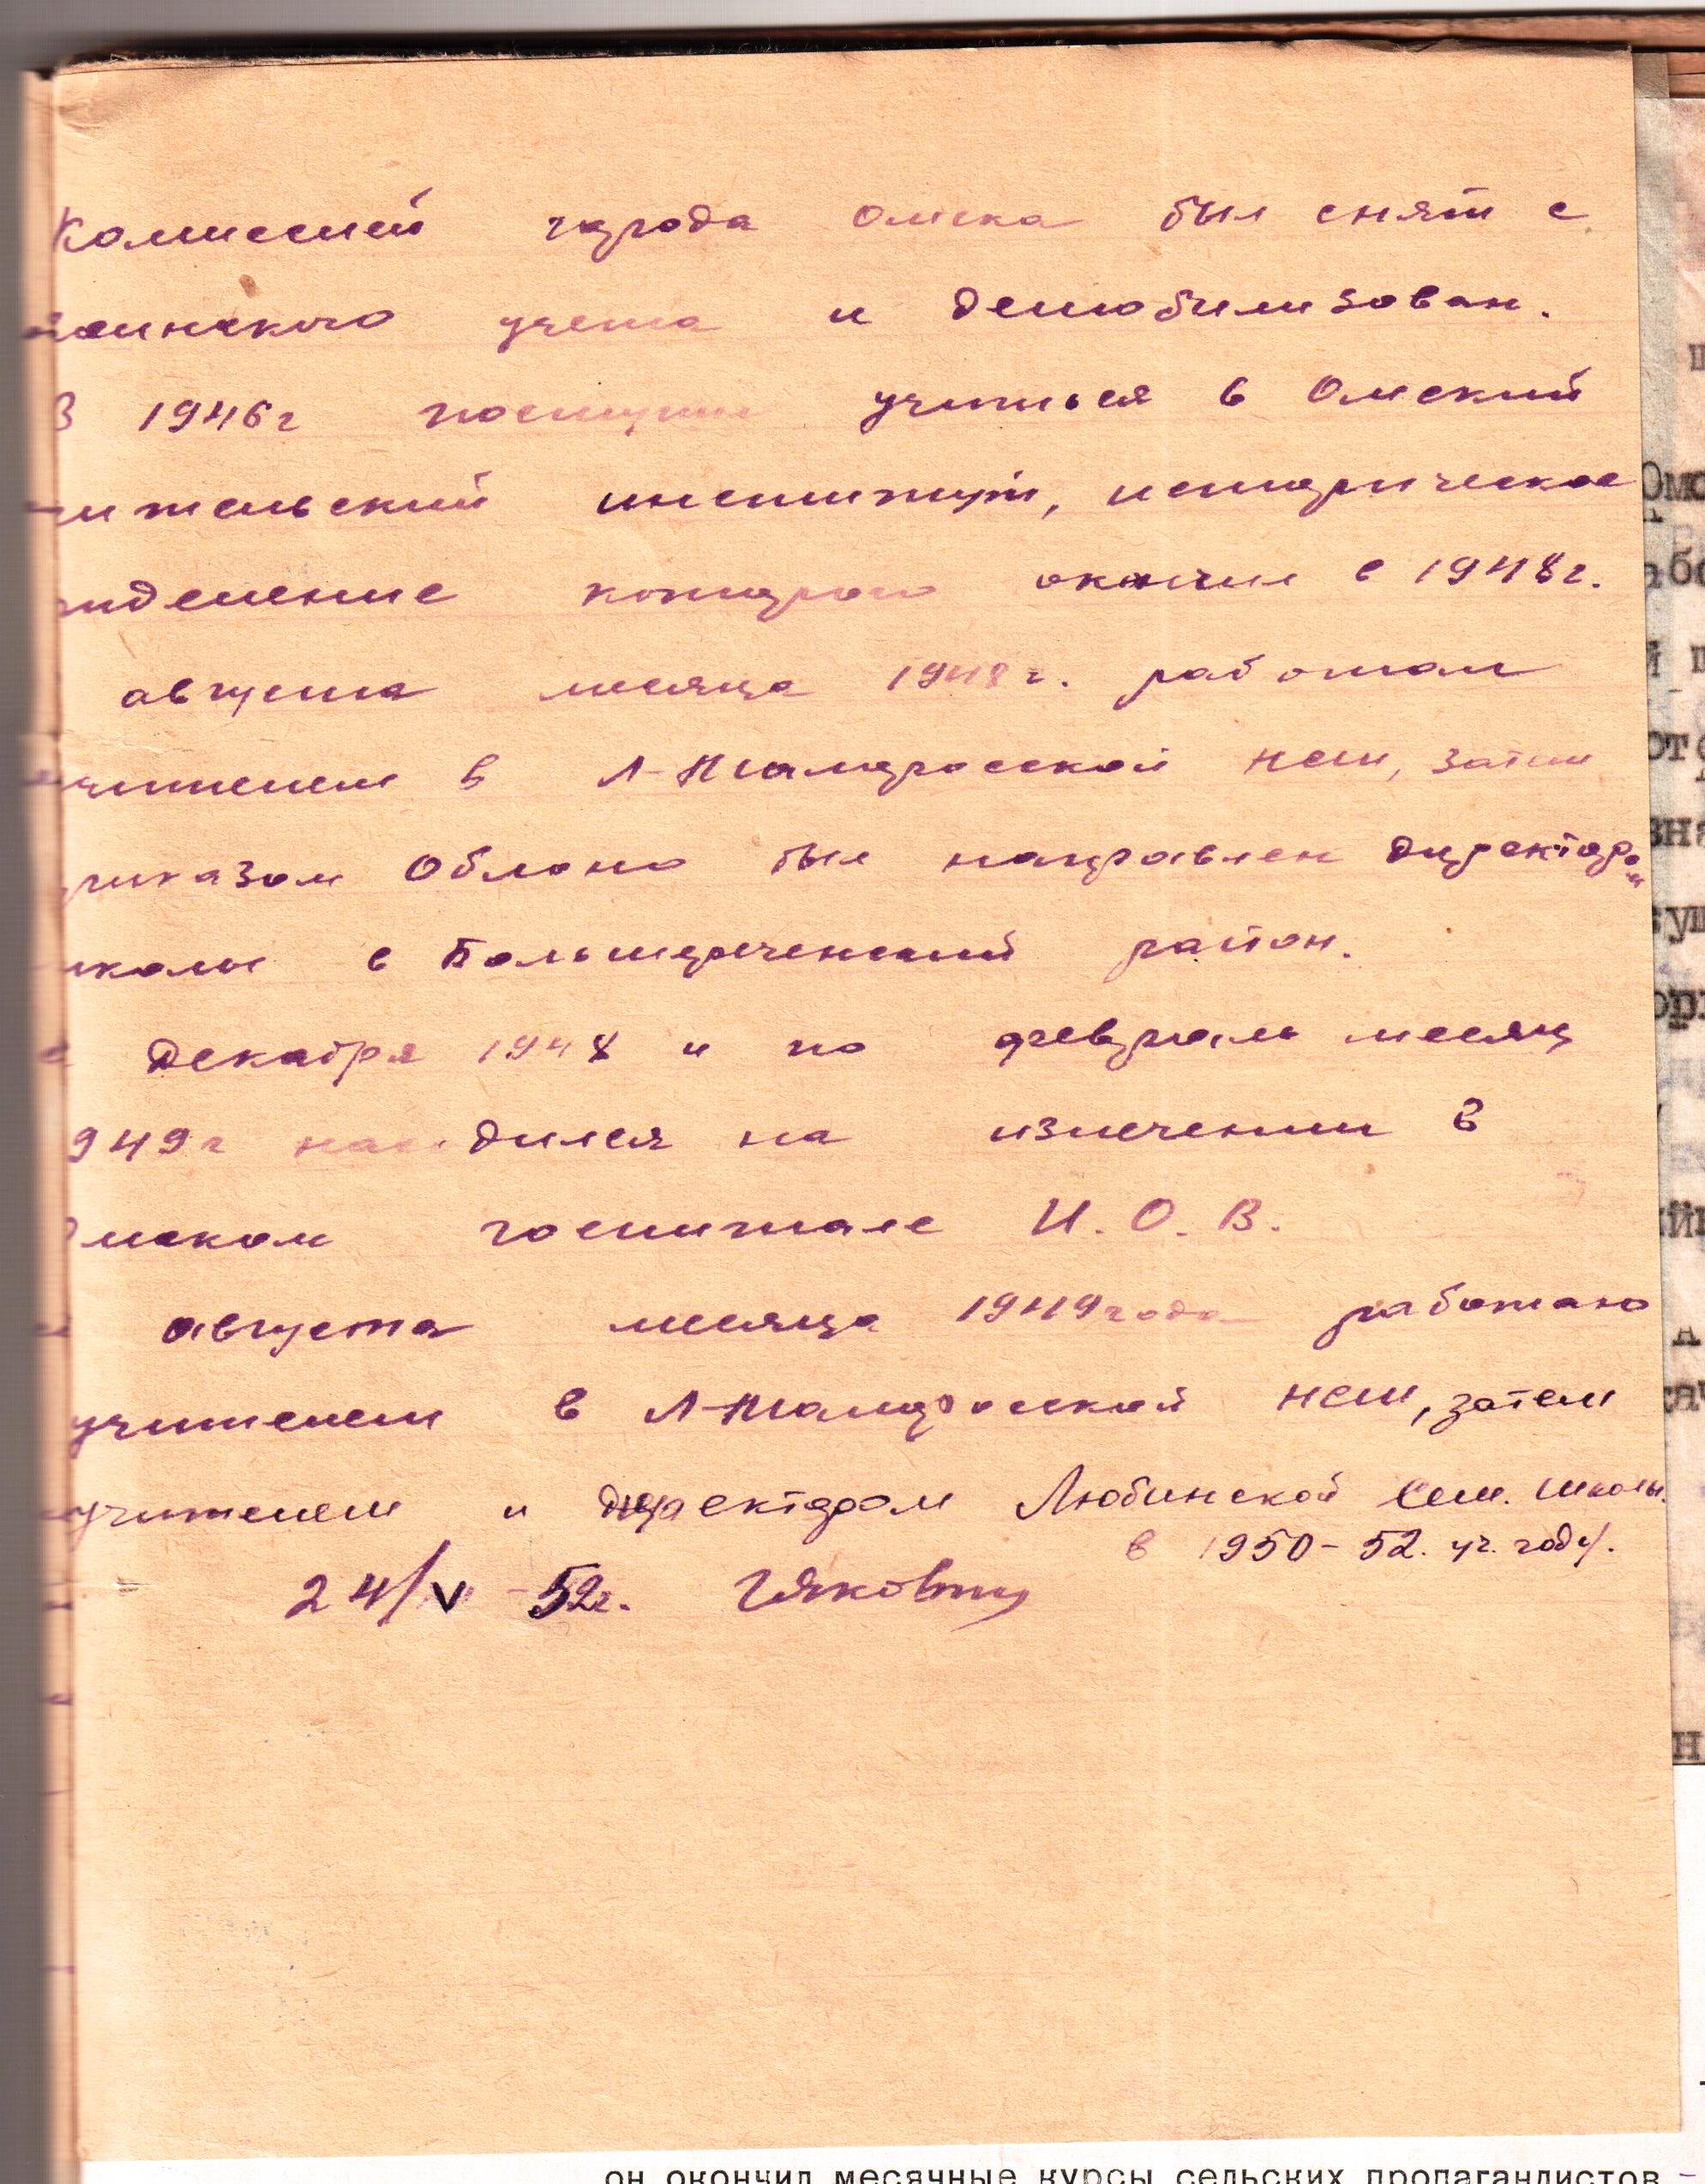 Комиссией города Омска был снят с
воинского учета и демобилизован.
В 1946г поступил учиться в Омский
учительский институт, историческое
отделение которого окончил в 1948г.
августа месяца 1948г. работал
учителем в Л- НСШ, затем
приказом Облоно был направлен директором
школы в Большереченский район.
с декабря 1948 и по февраль месяц
1949г находился на излечении в
Омском госпитале И.О.В.
августа месяца 1949 года работаю
учителем в Л- НСШ, затем
учителем и директором Любинской Сем. школы.
в 1950-52. уч. году.
24/V-52г.
он окончил месячные курсы сельских пропагандистов